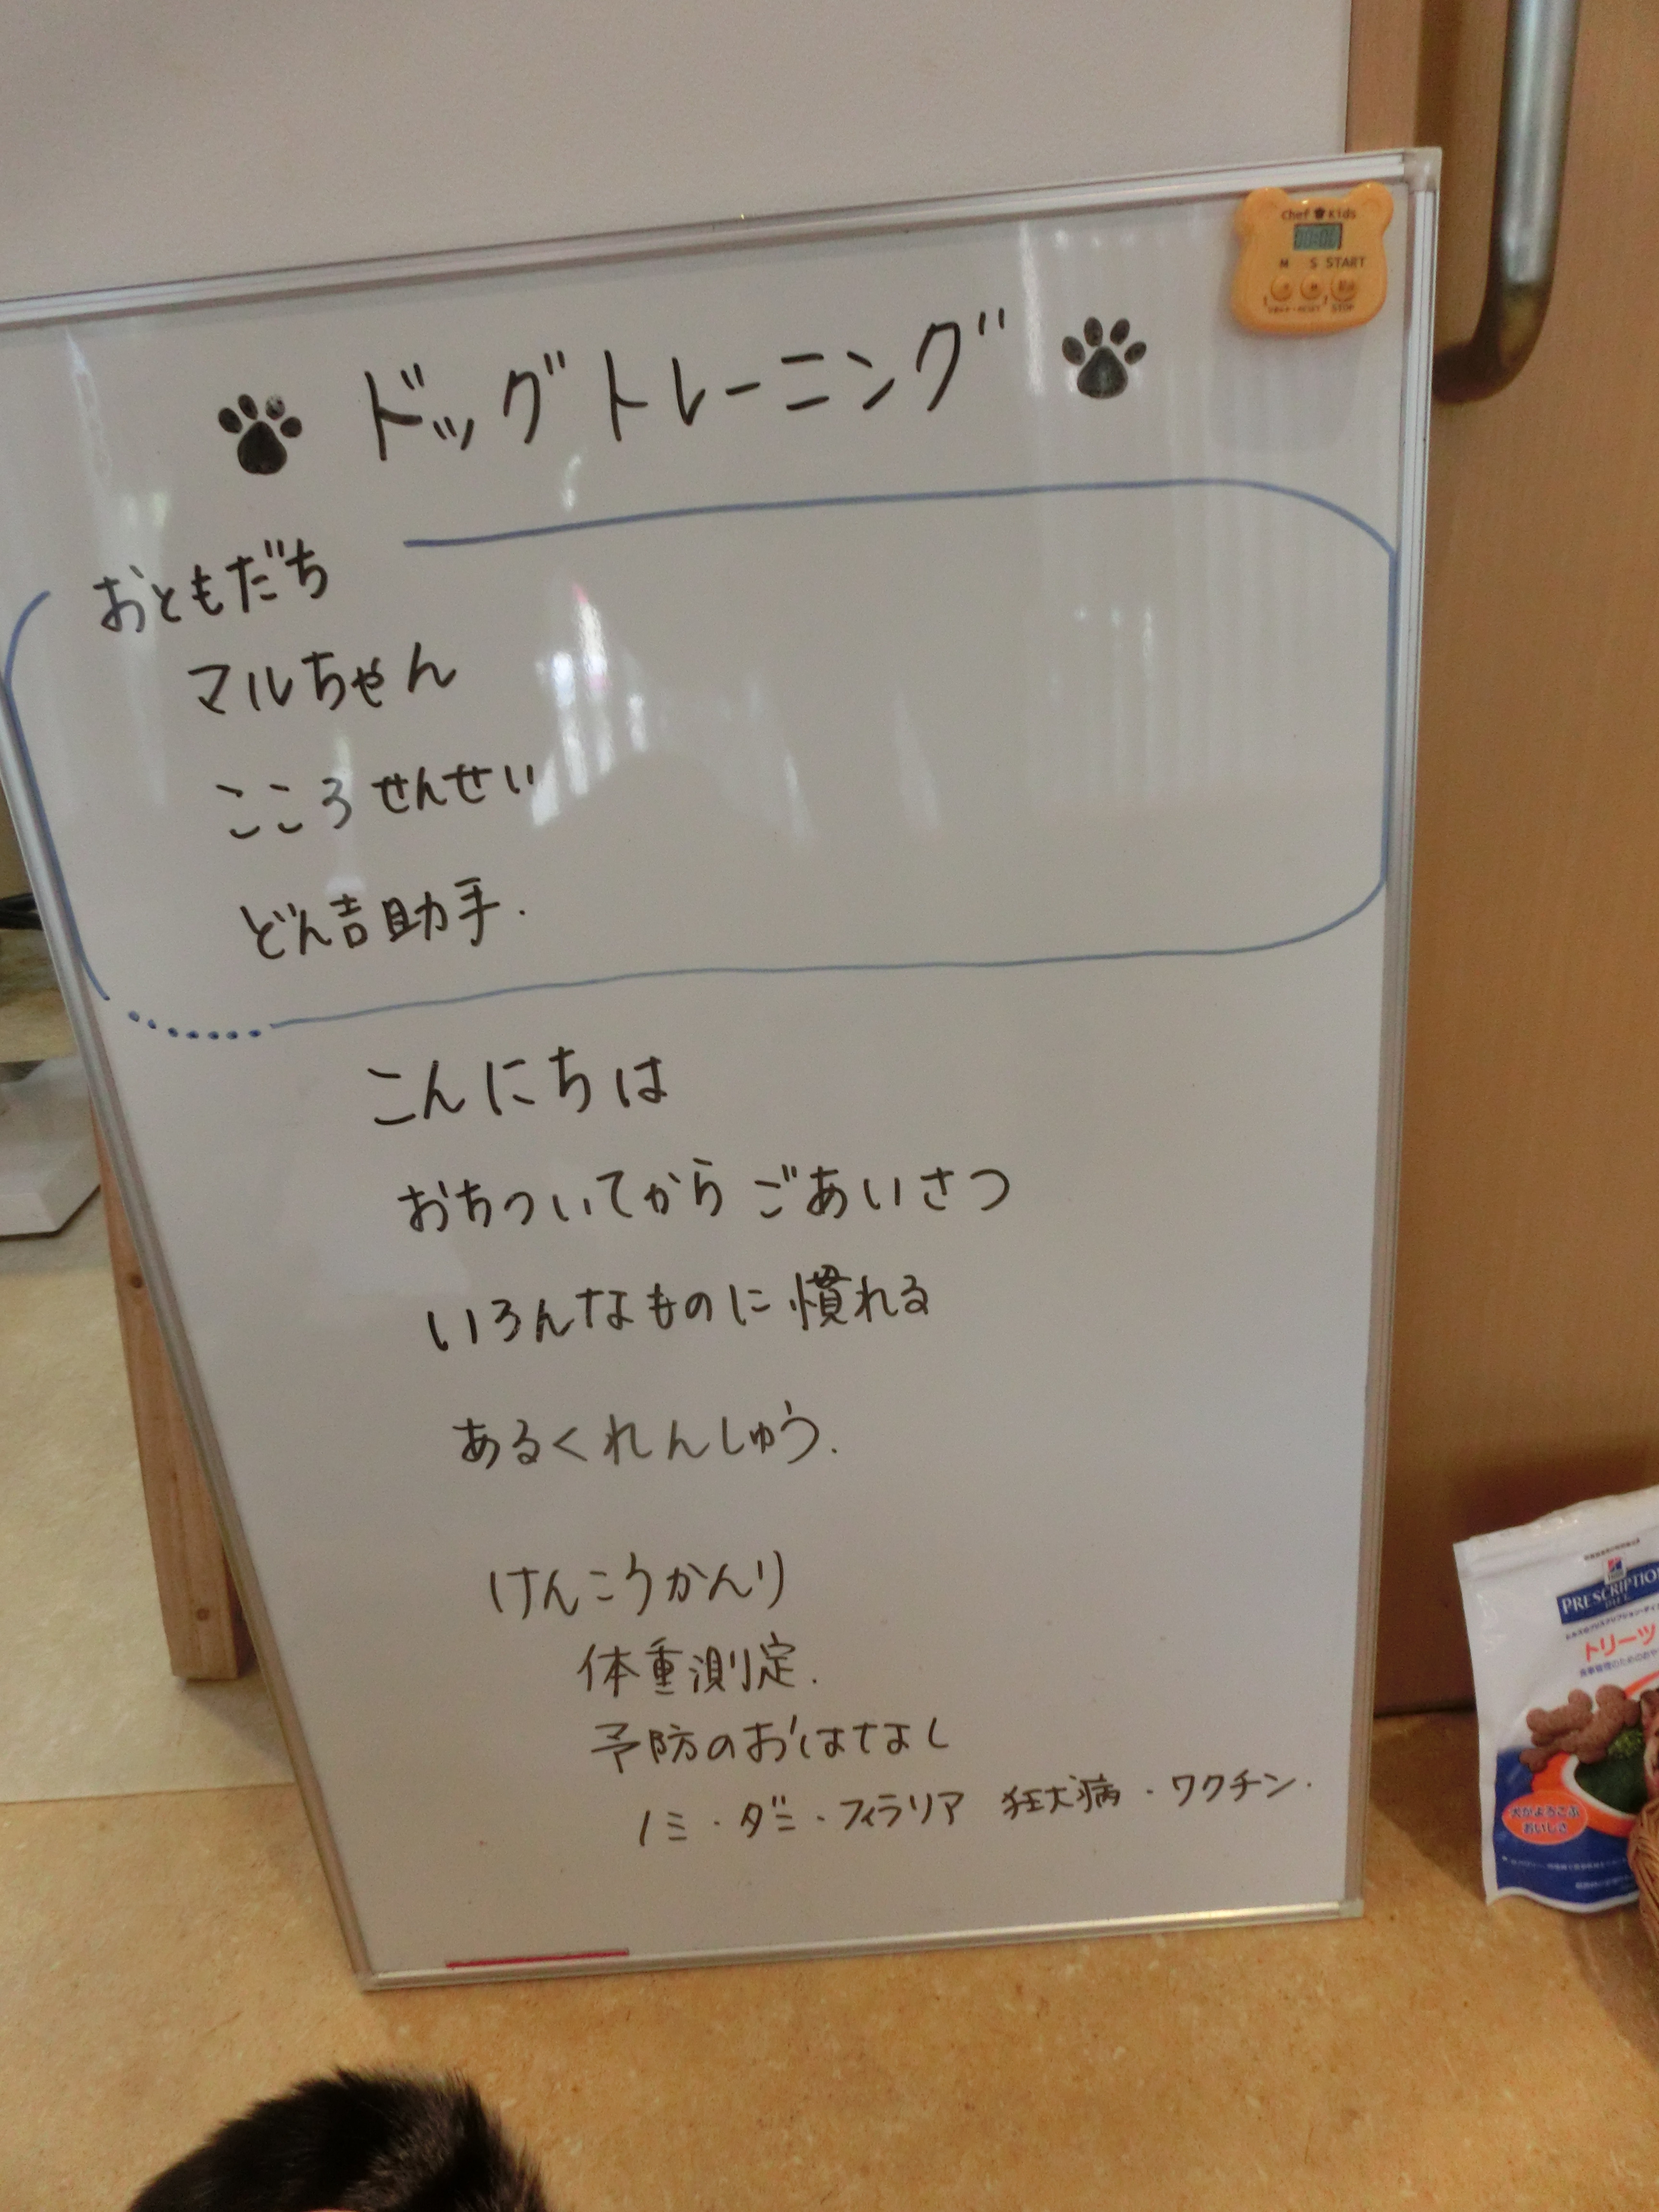 Chef Kids
M S START
STOP
ドッグトレーニング
おともだち
マルちゃん
こころせんせい
どん吉助手.
こんにちは
おちついてから ごあいさつ
いろんなものに慣れる
あるくれんしゅう.
けんこうかんり
体重測定.
予防のおはなし
ノミ・ダニ・フィラリア 狂犬病・ワクチン.
PRESCRIPTION
DIET
トリーツ
犬がよろこぶ
おいしさ